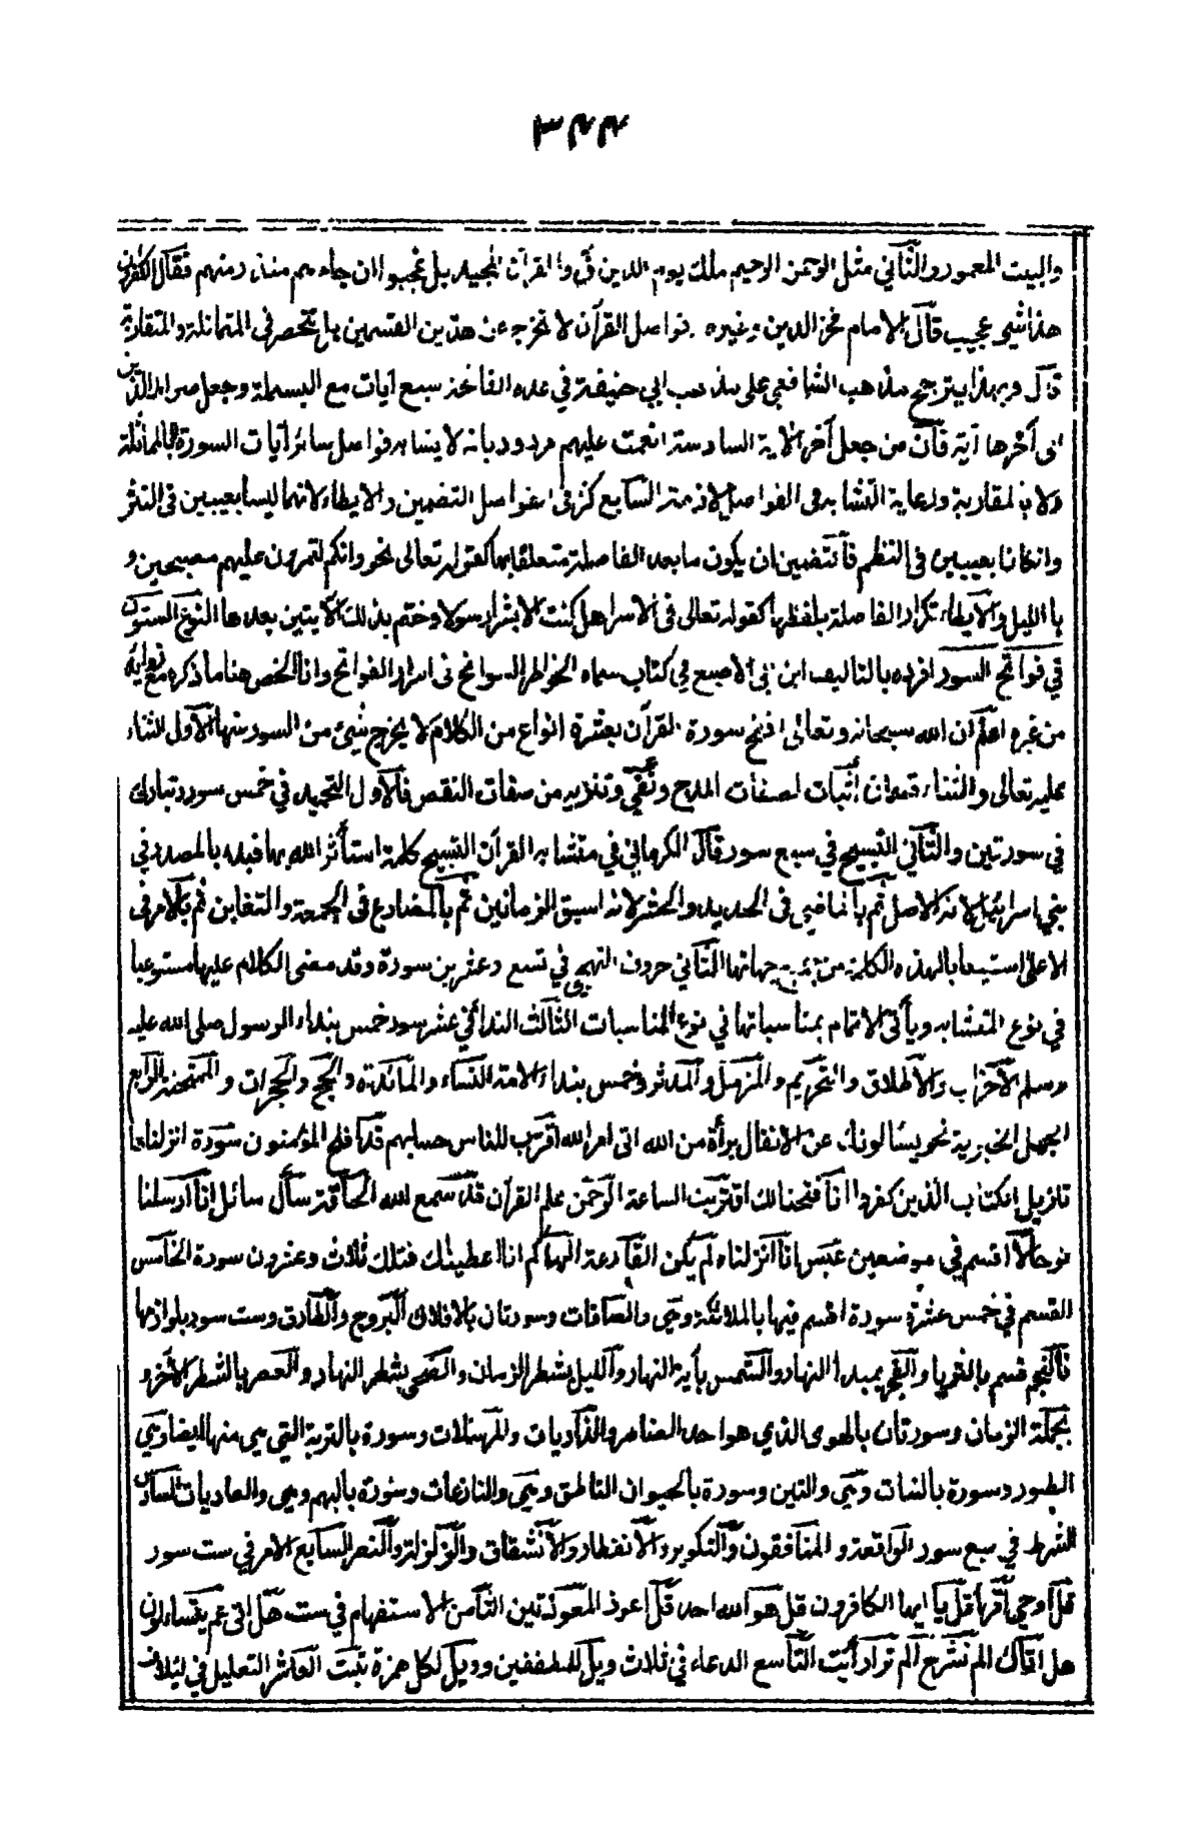 ٣٤٤
والبيت المعمور والثاني مثل الرحمن الرحيم ملك يوم الدين ق والقرآن المجيد بل عجبوا ان جاءهم منذر منهم فقال الكفرون
هذا شيء عجيب قال الامام فخر الدين وغيره فواصل القرآن لا تخرج عن هذين القسمين بل تنحصر في المتماثلة والمتقاربة
قال وبهذا يترجح مذهب الشافعي على مذهب ابي حنيفة في عده الفاتحة سبع آيات مع البسملة وجعل صراط الذين
الى آخرها آية فان من جعل آخر الاية السادسة انعمت عليهم مردود بانه لا يشابه فواصل سائر آيات السورة لا بالمماثلة
ولا بالمقاربة ورعاية التشابه في الفواصل لازمة السابع كثر في الفواصل التضمين والايطاء لانهما ليسا بعيبين في النثر
وان كانا بعيبين في النظم فالتضمين ان يكون ما بعد الفاصلة متعلقا بها كقوله تعالى نحو وانكم لتمرون عليهم مصبحين و
بالليل والايطاء تكرار الفاصلة بلفظها كقوله تعالى في الاسرا هل كنت الا بشرا رسولا وختم بذلك الآيتين بعدها النوع الستون
في فواتح السور افرده بالتاليف ابن ابي الاصبع في كتاب سماه الخواطر السوانح في اسرار الفواتح وانا الخص هنا ما ذكره مع زوايد
من غيره اعلم ان الله سبحانه وتعالى افتتح سورة القرآن بعشرة انواع من الكلام لا يخرج شيئ من السور منها الاول الثناء
عليه تعالى والثناء قسمان اثبات لصفات المدح ونفي وتنزيه من صفات النقص فالاول التحميد في خمس سور وتبارك
في سورتين والثاني التسبيح في سبع سور قال الكرماني في متشابه القرآن التسبيح كلمة استأثر الله بها فبدء بالمصدر في
بني اسرائيل لانه الاصل ثم بالماضي في الحديد والحشر لانه اسبق الزمانين ثم بالمضارع في الجمعة والتغابن ثم بالامر في
الاعلى استيعابا لهذه الكلمة من جميع جهاتها الثاني حروف التهجي في تسع وعشرين سورة وقد مضى الكلام عليها مستوعبا
في نوع المتشابه ويأتي الالمام بمناسباتها في نوع المناسبات الثالث الندا في عشر سور خمس بنداء الرسول صلى الله عليه
وسلم الاحزاب والطلاق والتحريم والمزمل والمدثر وخمس بنداء الامة النساء والمائدة والحج والحجرات والممتحنة الرابع
الجمل الخبرية نحو يسألونك عن الانفال براءة من الله اتى امر الله اقترب للناس حسابهم قد افلح المؤمنون سورة انزلناها
تنزيل الكتاب الذين كفروا انا فتحنا لك اقتربت الساعة الرحمن علم القرآن قد سمع الله الحاقة سأل سائل انا ارسلنا
نوحا لا اقسم في موضعين عبس انا انزلناه لم يكن القارعة الهاكم انا اعطيناك فتلك ثلاث وعشرون سورة الخامس
القسم في خمس عشرة سورة اقسم فيها بالملائكة وهي والصافات وسورتان بالافلاك البروج والطارق وست سور بلوازمها
فالنجم قسم بالثريا والفجر بمبدا النهار والشمس بآية النهار والليل بشطر الزمان والضحى بشطر النهار والعصر بالشطر الآخر و
بجملة الزمان وسورتان بالهوى الذي هو احد العناصر والذاريات والمرسلات وسورة بالتربة التي هي منها ايضا وهي
الطور وسورة بالنبات وهي والتين وسورة بالحيوان الناطق وهي والنازعات وسورة بالبهم وهي والعاديات السادس
الشرط في سبع سور الواقعة والمنافقون والتكوير والانفطار والانشقاق والزلزلة والنصر السابع الامر في ست سور
قل اوحي اقرأ قل يا ايها الكافرون قل هو الله احد قل اعوذ المعوذتين الثامن الاستفهام في ست هل اتى عم يتساءلون
هل اتاك الم نشرح الم تر ارأيت التاسع الدعاء في ثلاث ويل للمطففين وويل لكل همزة تبت العاشر التعليل في لئيلاف